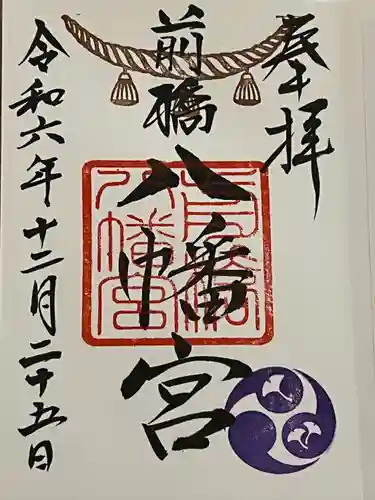 奉拝
前橋
八幡宮
令和六年十二月二十五日
前橋
八幡宮